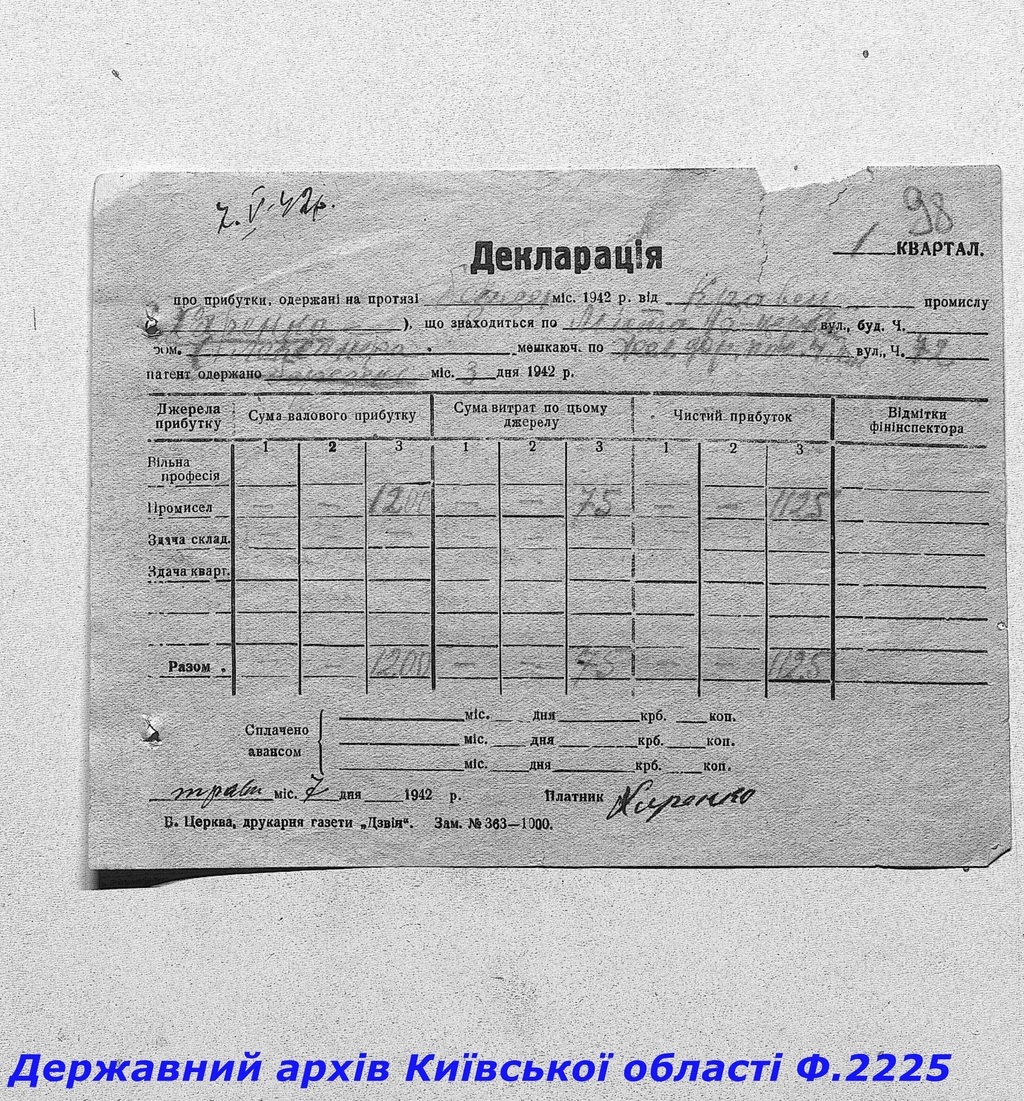 7.V.42р.
98
Декларація
1 КВАРТАЛ.
про прибутки, одержані на протязі міс. 1942 р. від Кравец промислу
), що знаходиться по вул., буд. Ч.
ром. мешкаюч. по вул., Ч. 72
патент одержано міс. 3 дня 1942 р.
Джерела прибутку Сума валового прибутку Сума витрат по цьому джерелу Чистий прибуток Відмітки фінінспектора
1 2 3 1 2 3 1 2 3
Вільна професія
Промисел — — 1200 — — 75 — — 1125
Здача склад. — — — — — —
Здача кварт.
Разом . — 1200 — — 75 — — 1125
Сплачено авансом
міс. дня крб. коп.
міс. дня крб. коп.
міс. дня крб. коп.
трав міс. 7 дня 1942 р. Платник Киренко
Б. Церква, друкарня газети „Дзвін". Зам. № 363—1000.
Державний архів Київської області Ф.2225